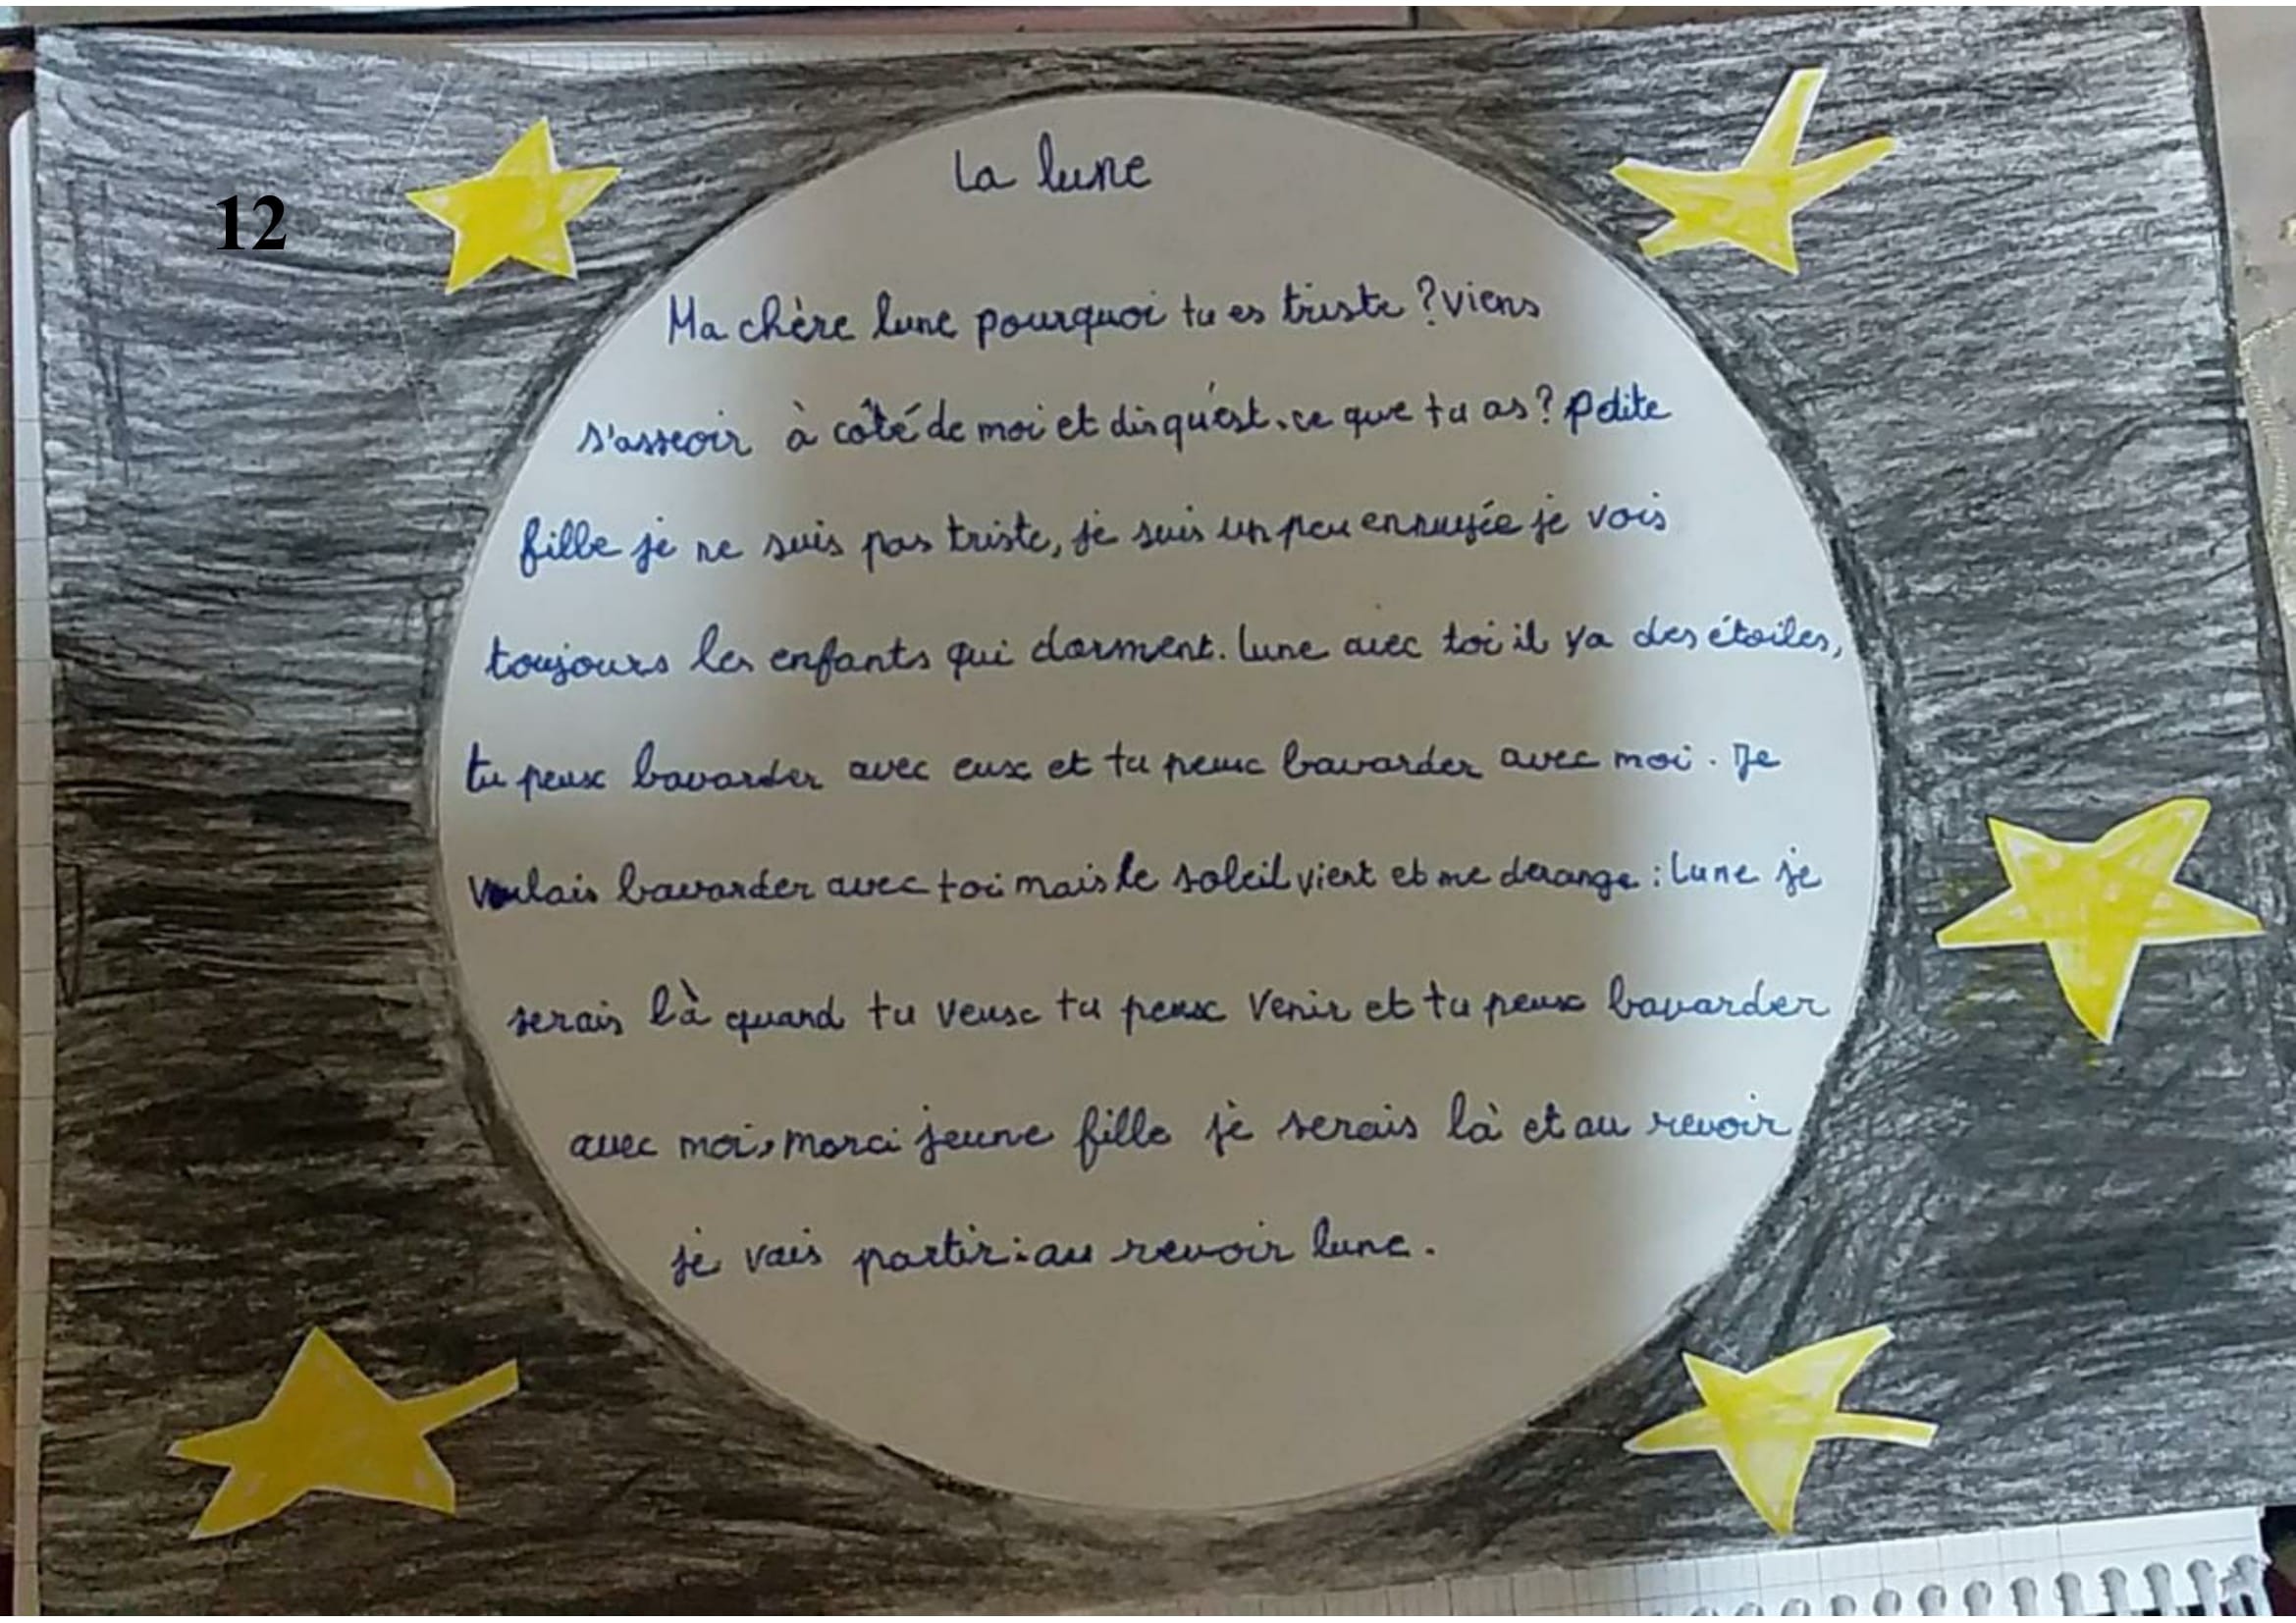 12
La lune
Ma chère lune pourquoi tu es triste ? viens
s'asseoir à côté de moi et dis qu'est-ce que tu as ? petite
fille je ne suis pas triste, je suis un peu ennuyée je vois
toujours les enfants qui dorment. lune avec toi il ya des étoiles,
tu peux bavarder avec eux et tu peux bavarder avec moi. Je
voulais bavarder avec toi mais le soleil vient et me derange : Lune je
serais là quand tu veux tu peux venir et tu peux bavarder
avec moi, merci jeune fille je serais là et au revoir
je vais partir : au revoir lune.